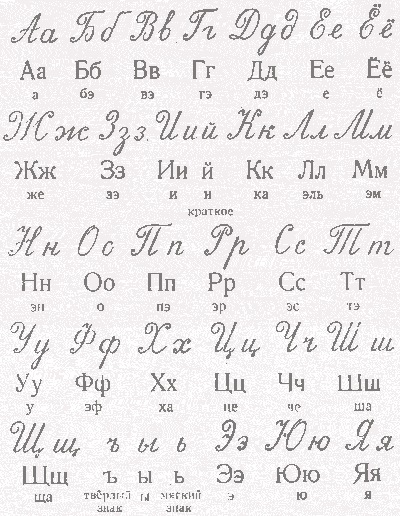 Аа Бб Вв Гг Ддд Ее Ёё
Аа Бб Вв Гг Дд Ее Ёё
а бэ вэ гэ дэ е ё
Жж Ззз Иий Кк Лл Мм
Жж Зз Ии й Кк Лл Мм
же зэ и и ка эль эм
краткое
Нн Оо Пп Рр Сс Тт
Нн Оо Пп Рр Сс Тт
эн о пэ эр эс тэ
Уу Фф Хх Цц Чч Шш
Уу Фф Хх Цц Чч Шш
у эф ха це че ша
Щщ ъ ы ь Ээ Юю Яя
Щщ ъ ы ь Ээ Юю Яя
ща твёрдый ы мягкий э ю я
знак знак